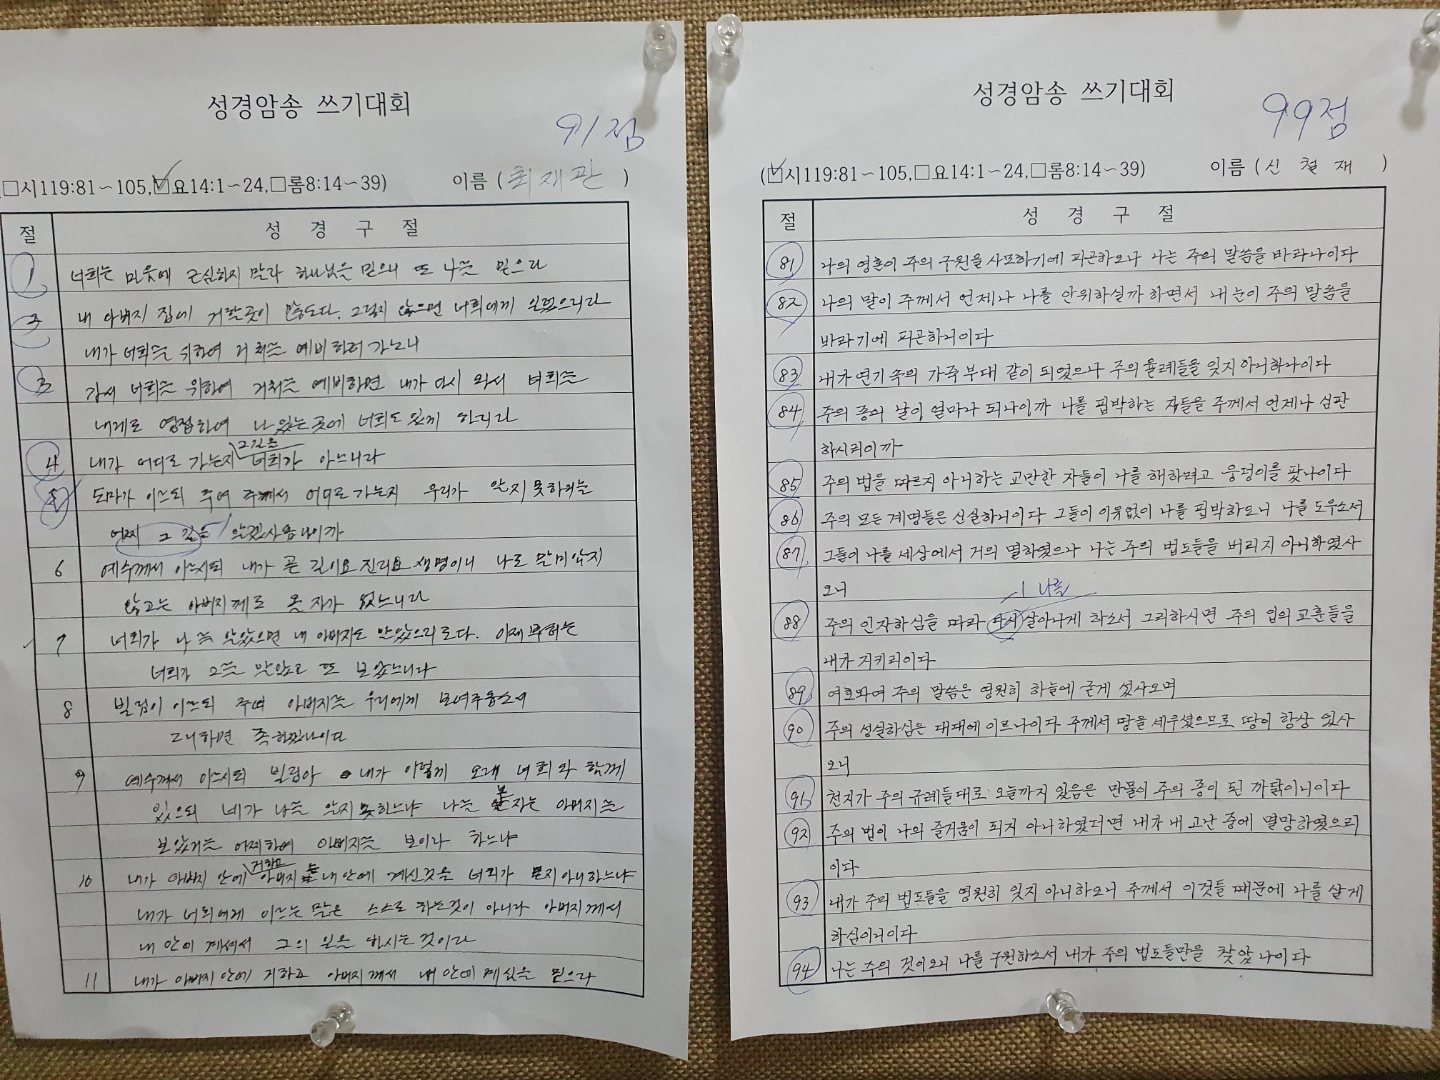 성경암송 쓰기대회
91점
(□시119:81~105,☑요14:1~24,□롬8:14~39) 이름 (최재관)
절 성 경 구 절
1 너희는 마음에 근심하지 말라 하나님을 믿으니 또 나를 믿으라
2 내 아버지 집에 거할곳이 많도다. 그렇지 않으면 너희에게 일렀으리라
내가 너희를 위하여 거처를 예비하러 가노니
3 가서 너희를 위하여 거처를 예비하면 내가 다시 와서 너희를
내게로 영접하여 나 있는 곳에 너희도 있게 하리라
4 내가 어디로 가는지 그 길을 너희가 아느니라
5 도마가 이르되 주여 주께서 어디로 가는지 우리가 알지 못하거늘
어찌 그 길을 알겠사옵나이까
6 예수께서 이르시되 내가 곧 길이요 진리요 생명이니 나로 말미암지
않고는 아버지께로 올 자가 없느니라
7 너희가 나를 알았으면 내 아버지도 알았으리로다. 이제 후하는
너희가 그를 알았고 또 보았느니라
8 빌립이 이르되 주여 아버지를 우리에게 보여주옵소서
그리하면 족하겠나이다
9 예수께서 이르시되 빌립아 내가 이렇게 오래 너희와 함께
있으되 네가 나를 알지 못하느냐 나를 본 자는 아버지를
보았거늘 어찌하여 아버지를 보이라 하느냐
10 내가 아버지 안에 거하고 아버지 내 안에 계신것을 네가 믿지아니하느냐
내가 너희에게 이르는 말은 스스로 하는것이 아니라 아버지께서
내 안에 계셔서 그의 일을 하시는 것이라
11 내가 아버지 안에 거하고 아버지께서 내 안에 계심을 믿으라
성경암송 쓰기대회
99점
(☑시119:81~105,□요14:1~24,□롬8:14~39) 이름 (신 철 재)
절 성 경 구 절
81 나의 영혼이 주의 구원을 사모하기에 피곤하오나 나는 주의 말씀을 바라나이다
82 나의 말이 주께서 언제나 나를 안위하실까 하면서 내 눈이 주의 말씀을
바라기에 피곤하니이다
83 내가 연기 속의 가죽 부대 같이 되었으나 주의 율례들을 잊지 아니하나이다
84 주의 종의 날이 얼마나 되나이까 나를 핍박하는 자들을 주께서 언제나 심판
하시리이까
85 주의 법을 따르지 아니하는 교만한 자들이 나를 해하려고 웅덩이를 팠나이다
86 주의 모든 계명들은 신실하니이다 그들이 이유없이 나를 핍박하오니 나를 도우소서
87 그들이 나를 세상에서 거의 멸하였으나 나는 주의 법도들을 버리지 아니하였사
오니
-1 나를
88 주의 인자하심을 따라 다시 살아나게 하소서 그리하시면 주의 입의 교훈들을
내가 지키리이다
89 여호와여 주의 말씀은 영원히 하늘에 굳게 섰사오며
90 주의 성실하심은 대대에 이르나이다 주께서 땅을 세우셨으므로 땅이 항상 있사
오니
91 천지가 주의 규례들대로 오늘까지 있음은 만물이 주의 종이 된 까닭이니이다
92 주의 법이 나의 즐거움이 되지 아니하였더면 내가 내 고난 중에 멸망하였으리
이다
93 내가 주의 법도들을 영원히 잊지 아니하오니 주께서 이것들 때문에 나를 살게
하심이니이다
94 나는 주의 것이오니 나를 구원하소서 내가 주의 법도들만을 찾았나이다